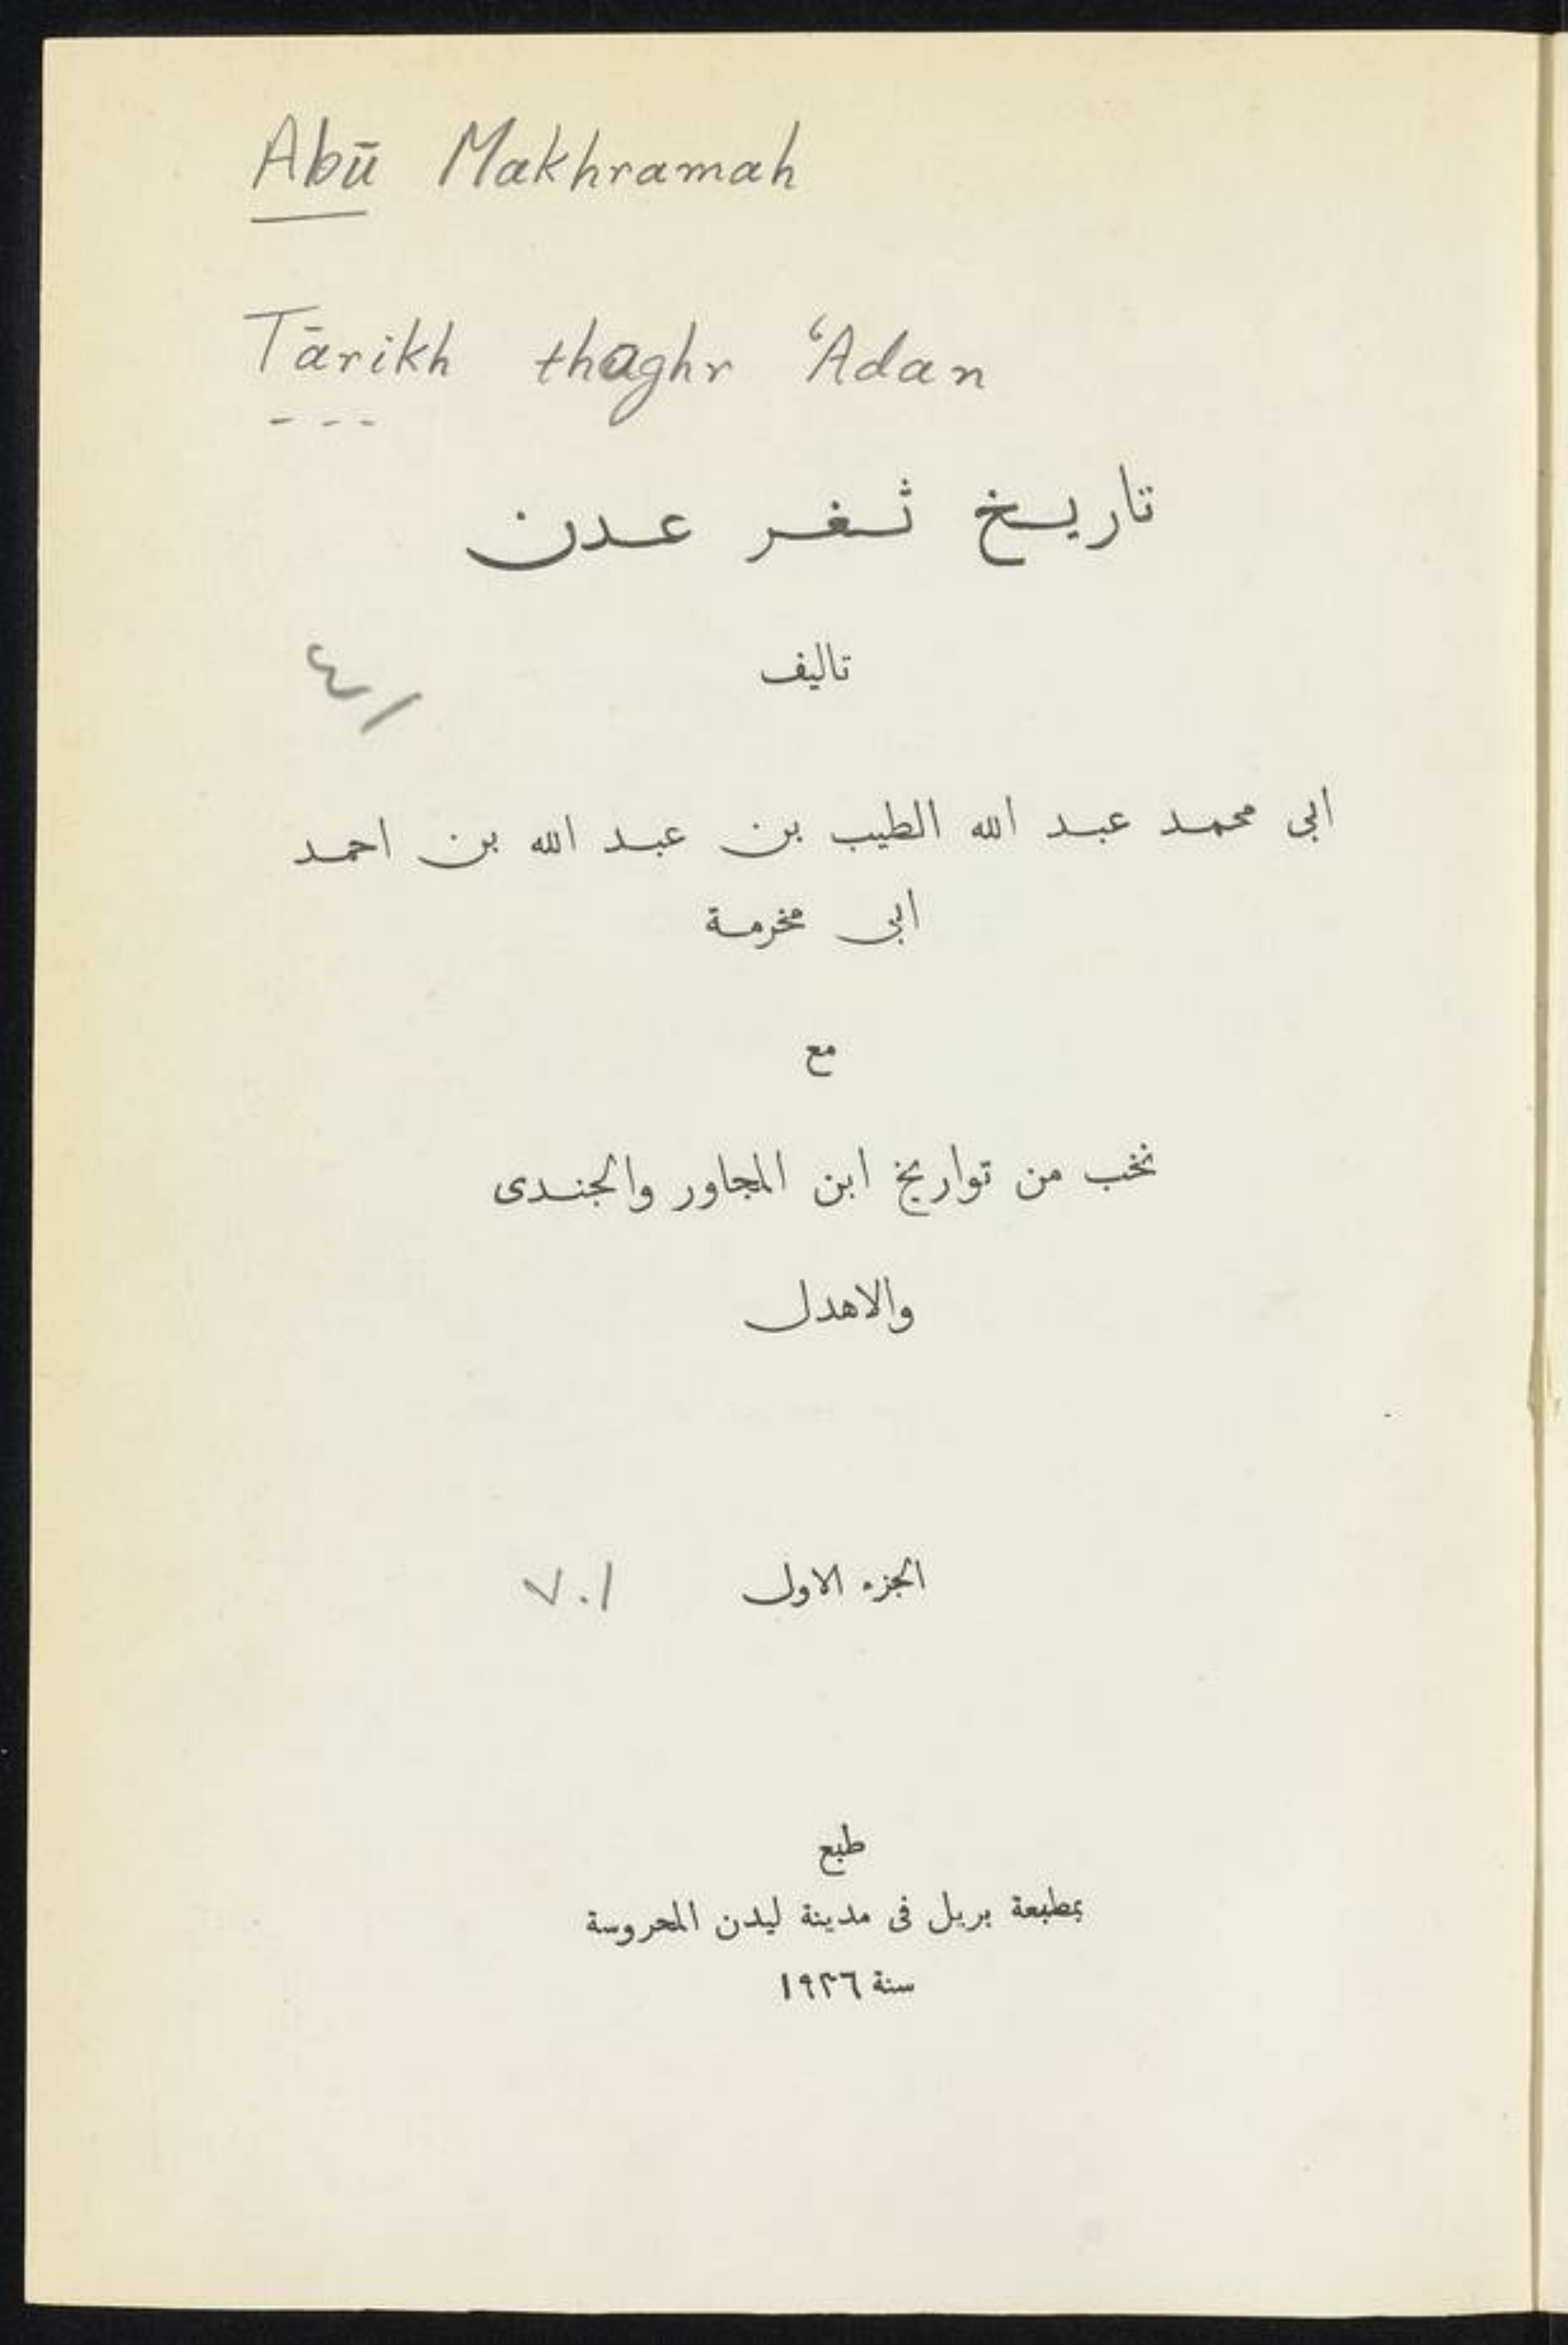 Abū Makhramah
Tārikh thaghr ‘Adan
تاريخ ثغر عدن
تاليف
٤/
ابى محمد عبد الله الطيب بن عبد الله بن احمد
ابى مخرمة
مع
نخب من تواريخ ابن المجاور والجندى
والاهدل
الجزء الاول ٧٠١
طبع
بمطبعة بريل فى مدينة ليدن المحروسة
سنة ١٩٣٦